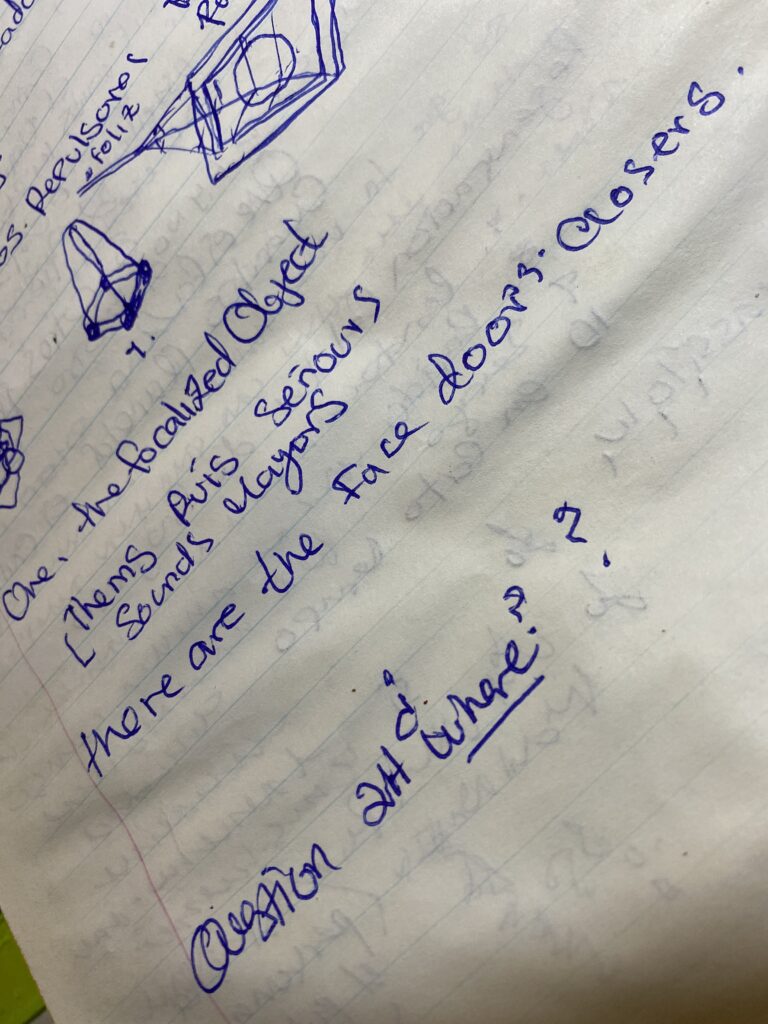 Repulsores
foliz
1.
One, the focalized Object
[Thems Puis Señours
Sounds Mayors
there are the Face doors. Closers.
Question 2H ¿Where? ?